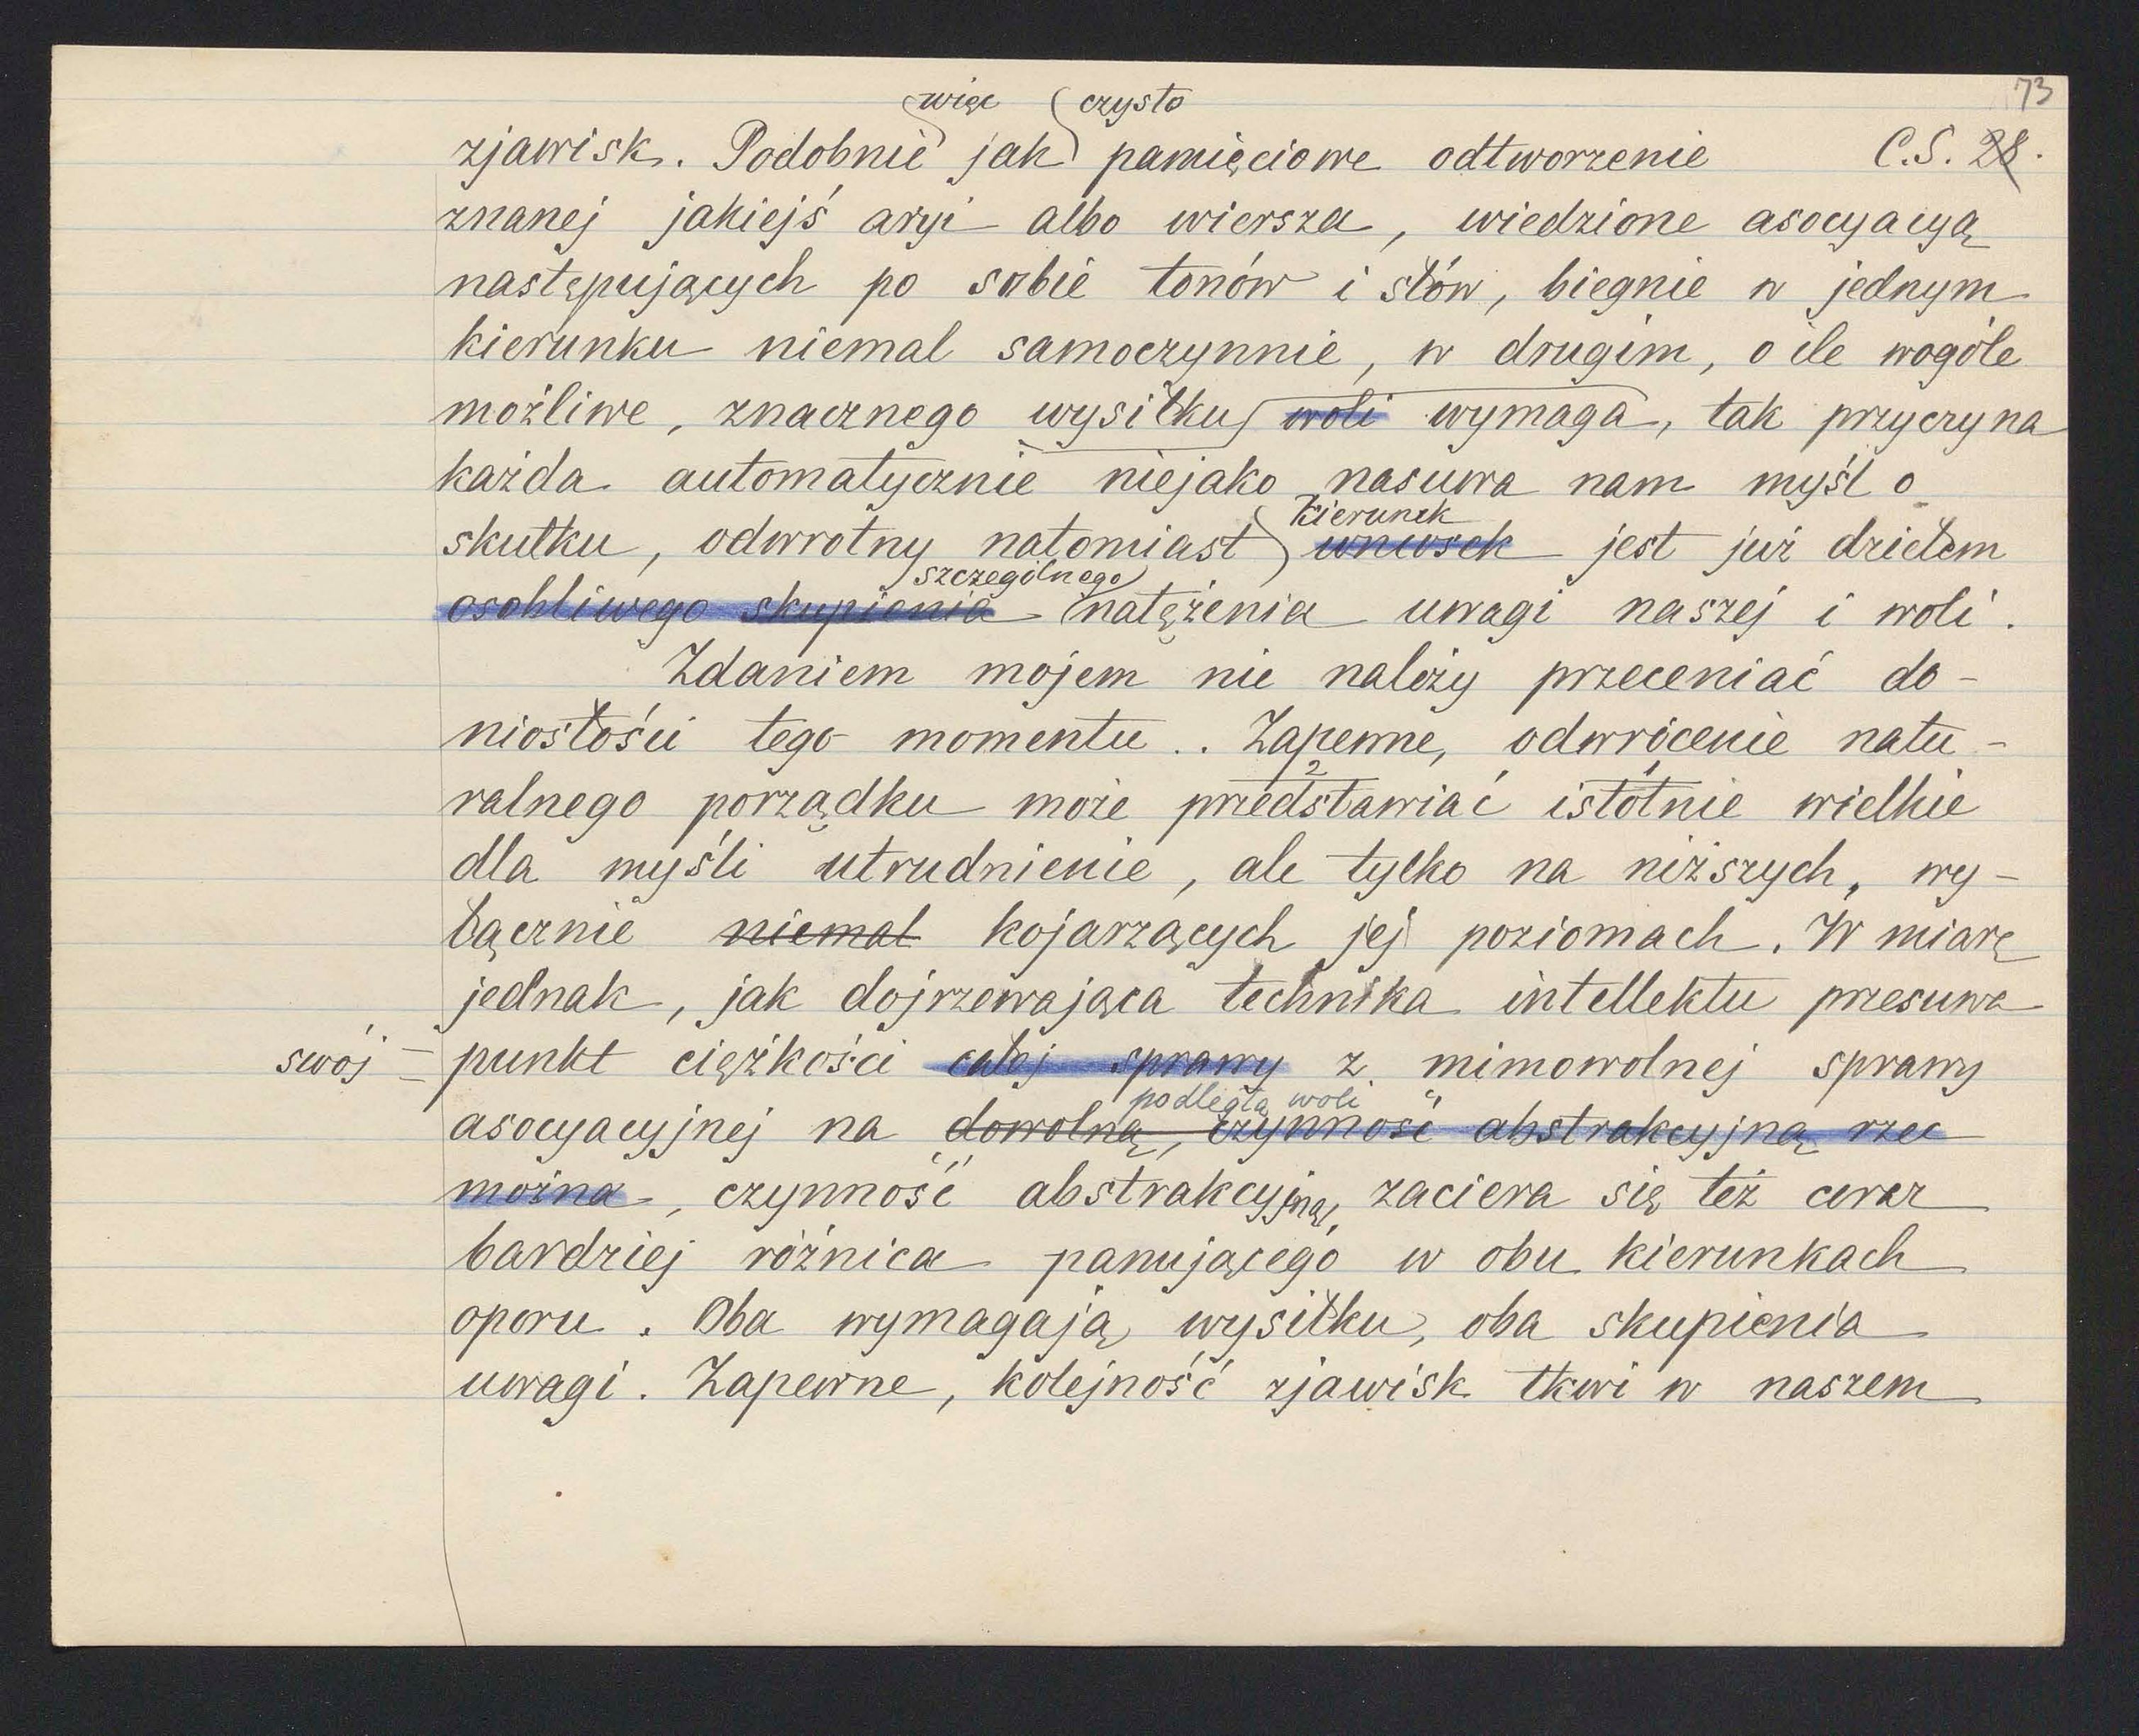 73
więc czysto
zjawisk. Podobnie jak pamięciowe odtworzenie C.S. 28.
znanej jakiejś aryi albo wiersza, wiedzione asocyacyą
następujących po sobie tonów i słów, biegnie w jednym
kierunku niemal samoczynnie, w drugim, o ile wogóle
możliwe, znacznego wysiłku woli wymaga, tak przyczyna
każda automatycznie niejako nasuwa nam myśl o
kierunek
skutku, odwrotny natomiast wniosek jest już dziełem
szczególnego
osobliwego skupienia natężenia uwagi naszej i woli.
Zdaniem mojem nie należy przeceniać do-
niosłości tego momentu.. Zapewne, odwrócenie natu-
2 1
ralnego porządku może przedstawiać istotnie wielkie
dla myśli utrudnienie, ale tylko na niższych, wy-
łącznie niemal kojarzących jej poziomach. W miarę
jednak, jak dojrzewająca technika intellektu przesuwa
swój = punkt ciężkości całej sprawy z mimowolnej sprawy
podległą woli
asocyacyjnej na dowolną, czynność abstrakcyjną rzec
można, czynność abstrakcyjną, zaciera się też coraz
bardziej różnica panującego w obu kierunkach
oporu. Oba wymagają wysiłku, oba skupienia
uwagi. Zapewne, kolejność zjawisk tkwi w naszem